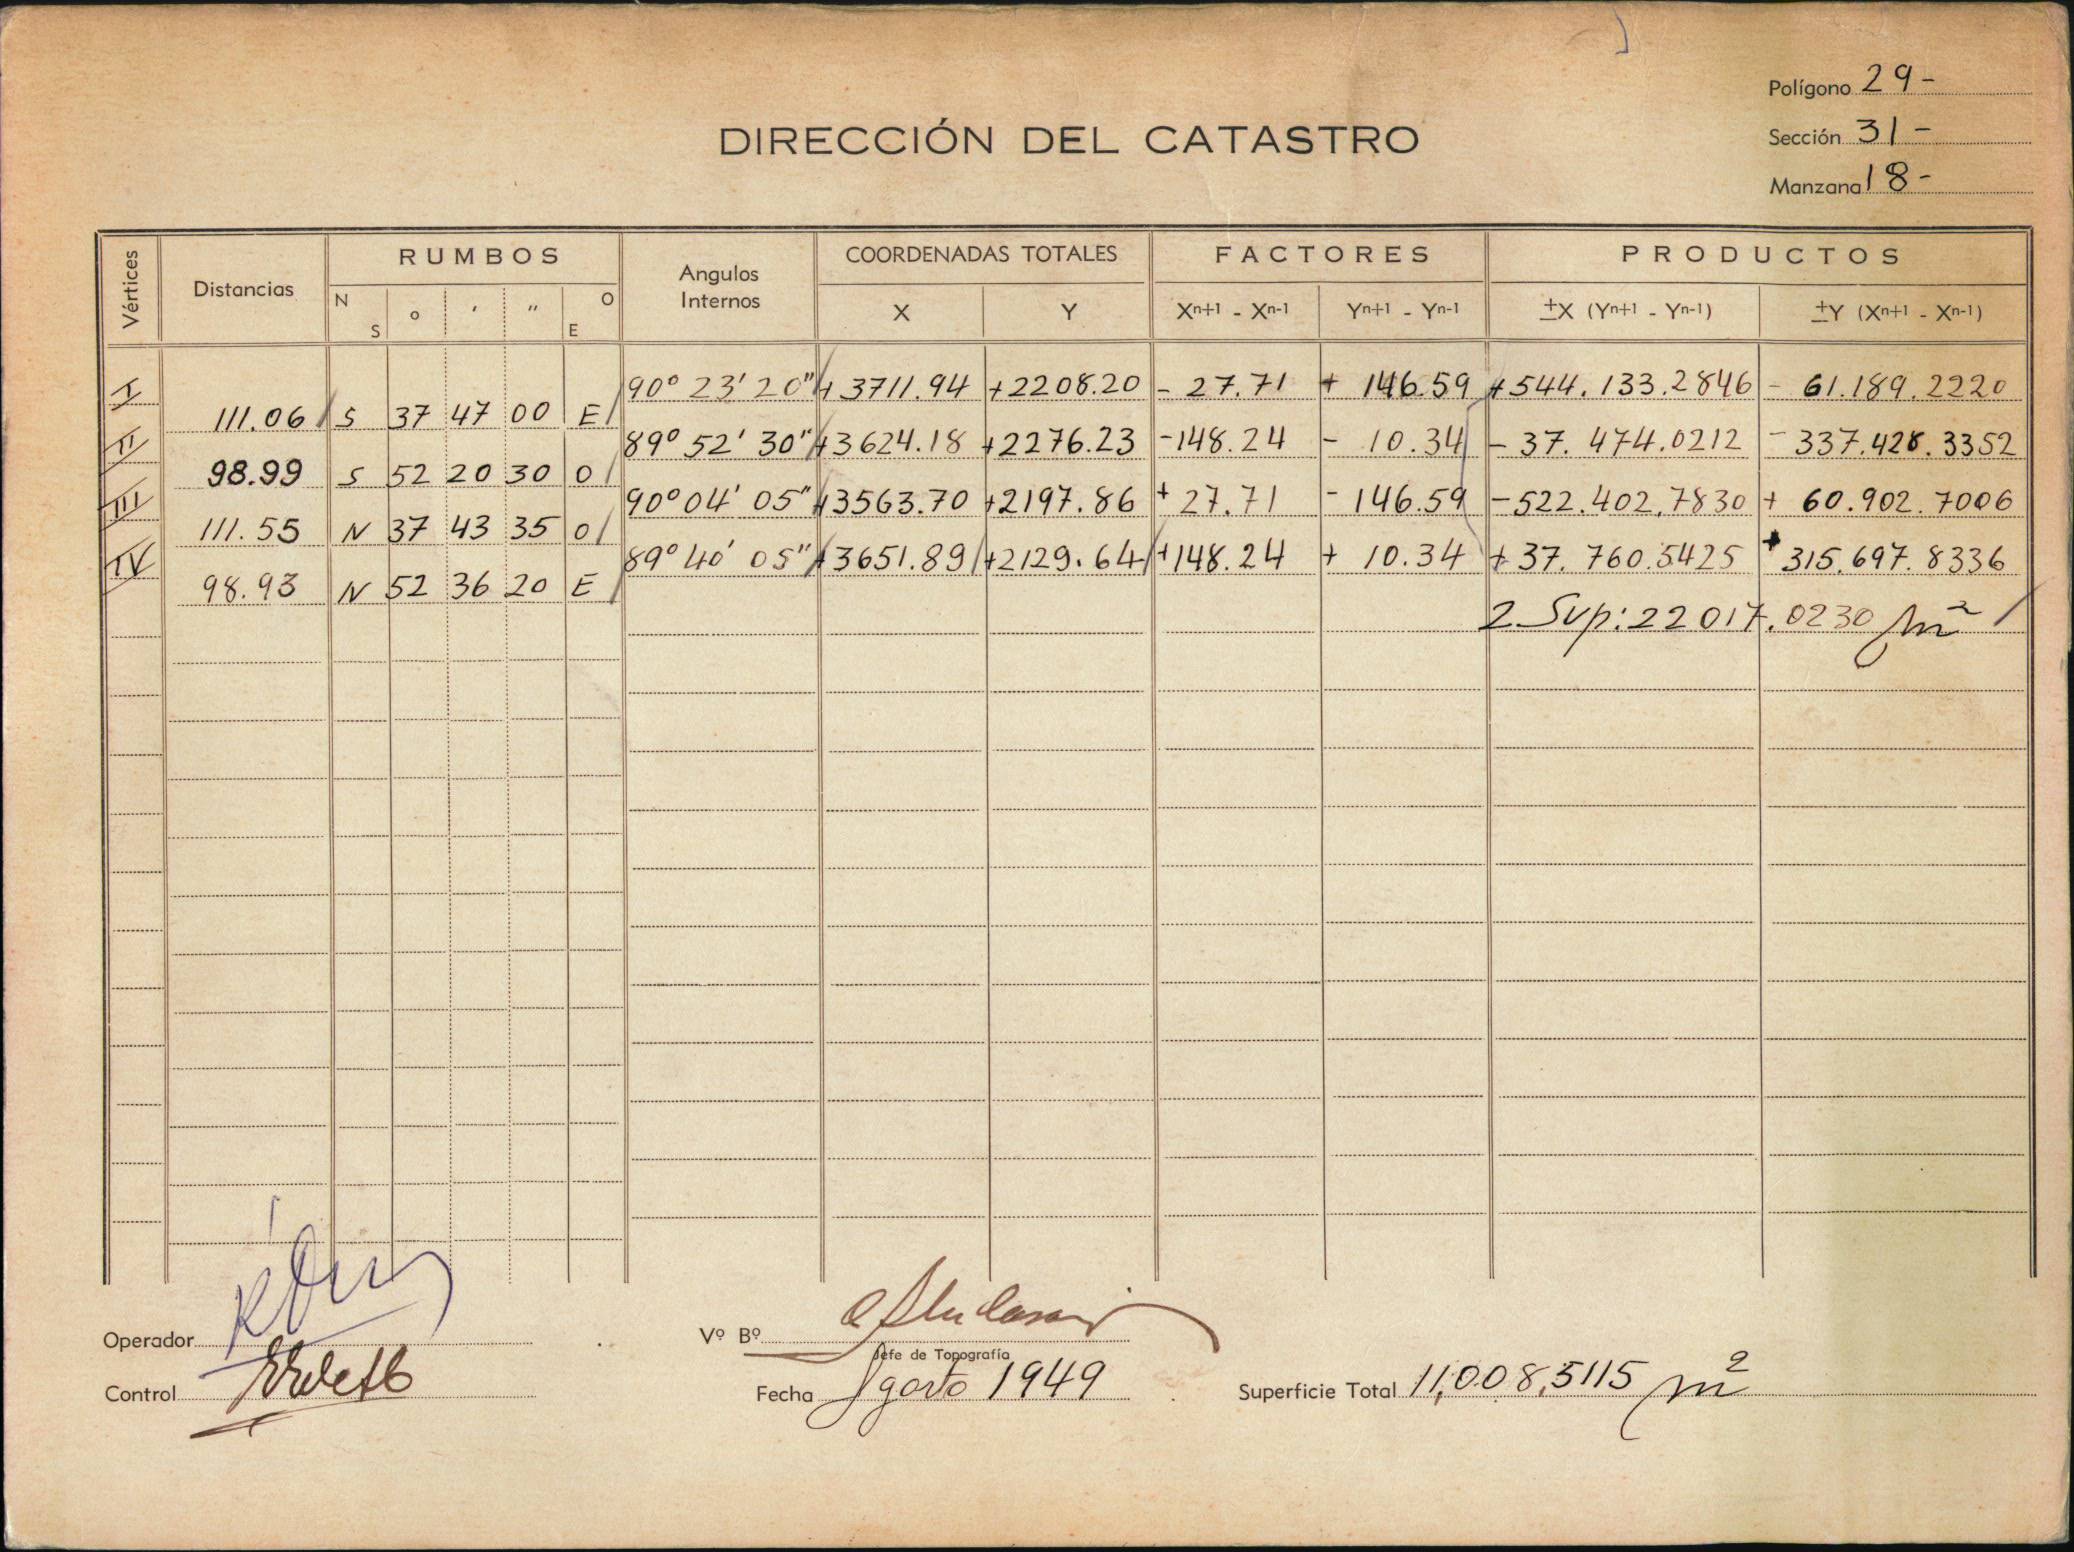 Polígono 29-
DIRECCIÓN DEL CATASTRO
Sección 31-
Manzana 18-
Vértices Distancias RUMBOS Angulos Internos COORDENADAS TOTALES FACTORES PRODUCTOS
N S ° ′ ″ O E X Y Xⁿ⁺¹ - Xⁿ⁻¹ Yⁿ⁺¹ - Yⁿ⁻¹ ±X (Yⁿ⁺¹ - Yⁿ⁻¹) ±Y (Xⁿ⁺¹ - Xⁿ⁻¹)
I 90° 23' 20" +3711.94 +2208.20 - 27.71 + 146.59 +544.133.2846 - 61.189.2220
111.06 S 37 47 00 E
II 89° 52' 30" +3624.18 +2276.23 -148.24 - 10.34 - 37.474.0212 - 337.428.3352
98.99 S 52 20 30 O
III 90° 04' 05" +3563.70 +2197.86 + 27.71 - 146.59 -522.402.7830 + 60.902.7006
111.55 N 37 43 35 O
IV 89° 40' 05" +3651.89 +2129.64 +148.24 + 10.34 + 37.760.5425 + 315.697.8336
98.93 N 52 36 20 E
2 Sup: 22017.0230 m²
Operador
Vº Bº
Jefe de Topografía
Control
Fecha Agosto 1949
Superficie Total 11,008,5115 m²